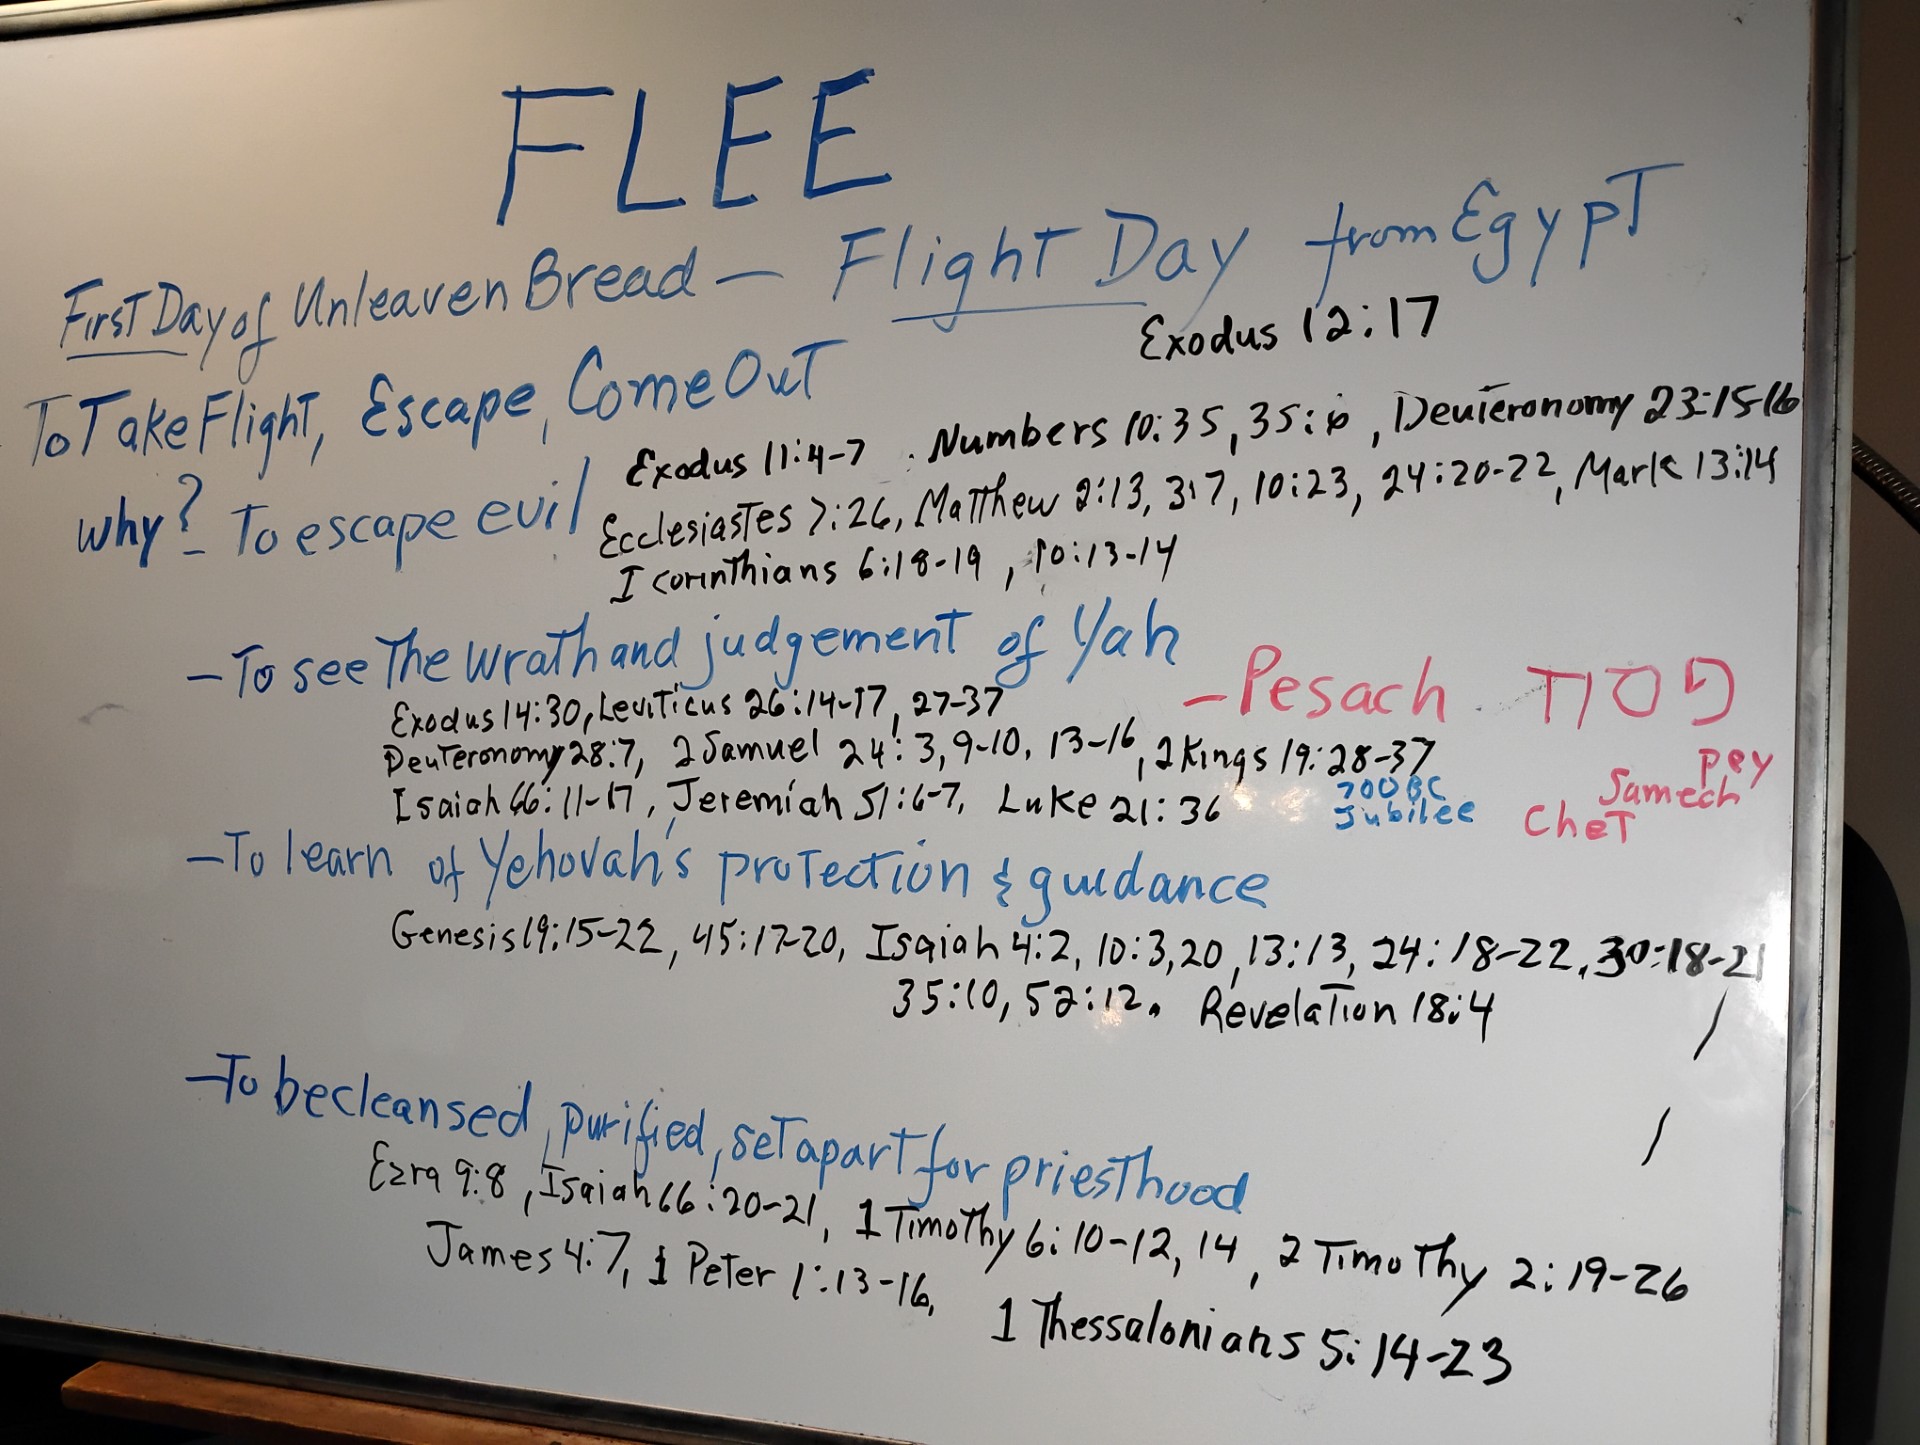 FLEE
First Day of Unleaven Bread — Flight Day from Egypt
Exodus 12:17
To Take Flight, Escape, Come Out
Exodus 11:4-7 Numbers 10:35, 35:6, Deuteronomy 23:15-16
why? To escape evil
Ecclesiastes 7:26, Matthew 2:13, 3:7, 10:23, 24:20-22, Mark 13:14
I corinthians 6:18-19, 10:13-14
- To see The wrath and judgement of Yah
- Pesach פסח
Exodus 14:30, Leviticus 26:14-17, 27-37
Deuteronomy 28:7, 2 Samuel 24:3, 9-10, 13-16, 2 Kings 19:28-37
pey
Samech
Chet
700 BC
Jubilee
Isaiah 66:11-17, Jeremiah 51:6-7, Luke 21:36
- To learn of Yehovah's protection & guidance
Genesis 19:15-22, 45:17-20, Isaiah 4:2, 10:3,20, 13:13, 24:18-22, 30:18-21
35:10, 52:12. Revelation 18:4
- To be cleansed, purified, set apart for priesthood
Ezra 9:8, Isaiah 66:20-21, 1 Timothy 6:10-12, 14, 2 Timothy 2:19-26
James 4:7, 1 Peter 1:13-16,
1 Thessalonians 5:14-23